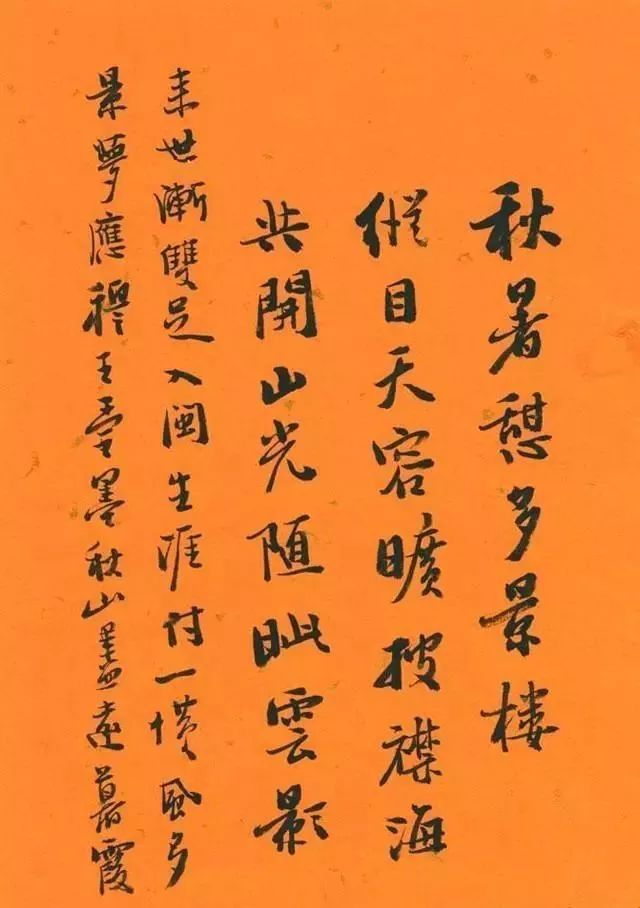 秋暑憩多景樓
縱目天容曠披襟海
共開山光随眦雲影
来世漸雙足入閩生涯付一風多
景夢應穆王臺墨秋山盡遠暮霞